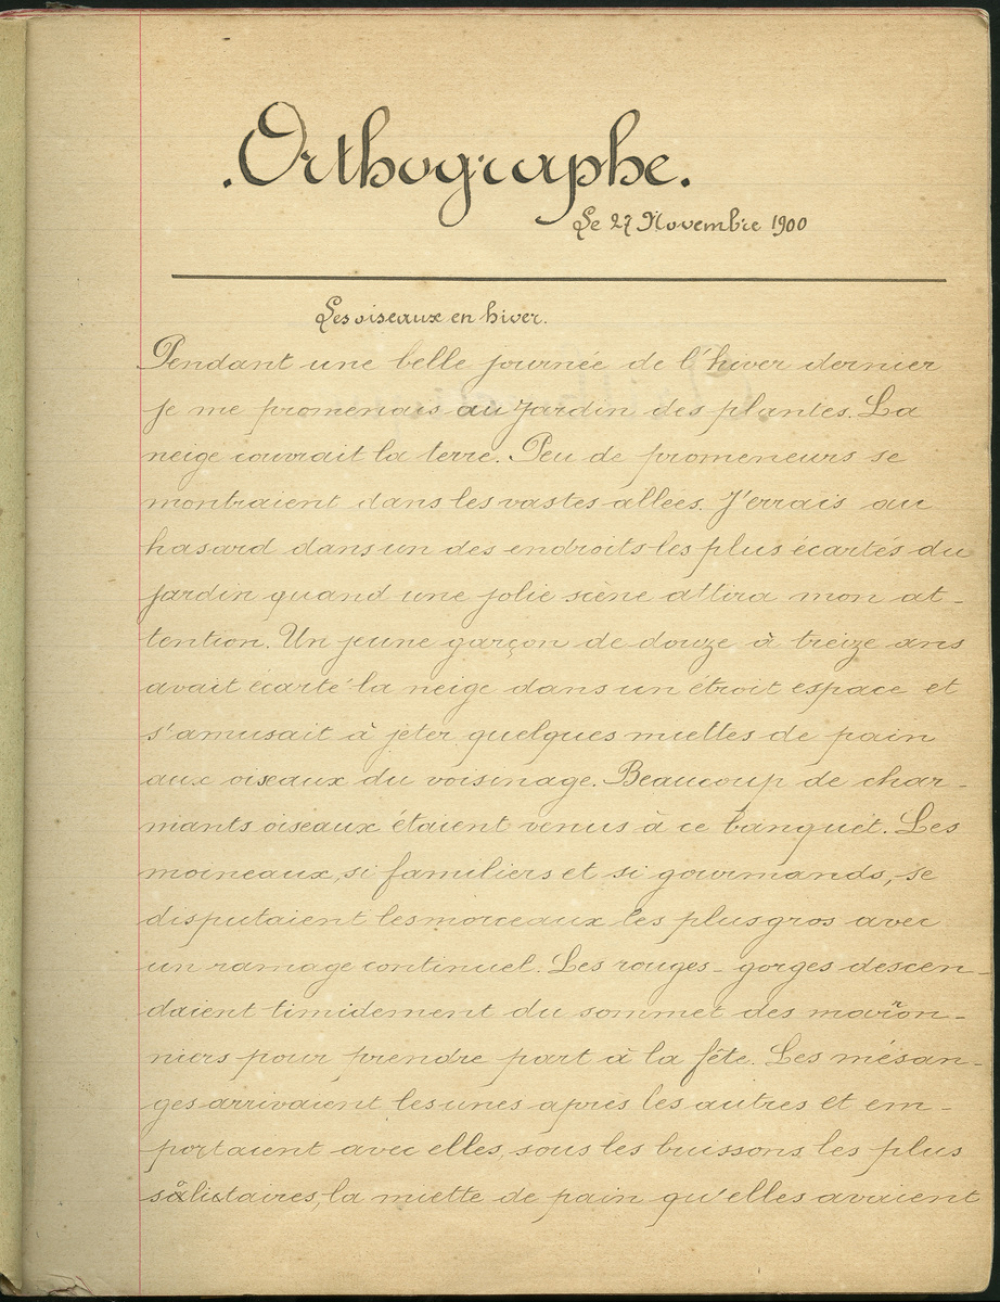 .Orthographe.
Le 27 Novembre 1900
Les oiseaux en hiver.
Pendant une belle journée de l'hiver dernier
je me promenais au Jardin des plantes. La
neige couvrait la terre. Peu de promeneurs se
montraient dans les vastes allées. J'errais au
hasard dans un des endroits les plus écartés du
jardin quand une jolie scène attira mon at-
tention. Un jeune garçon de douze à treize ans
avait écarté la neige dans un étroit espace et
s'amusait à jeter quelques miettes de pain
aux oiseaux du voisinage. Beaucoup de char-
mants oiseaux étaient venus à ce banquet. Les
moineaux, si familiers et si gourmands, se
disputaient les morceaux les plus gros avec
un ramage continuel. Les rouges-gorges descen-
daient timidement du sommet des marron-
niers pour prendre part à la fête. Les mésan-
ges arrivaient les unes après les autres et em-
portaient avec elles, sous les buissons les plus
solitaires, la miette de pain qu'elles avaient